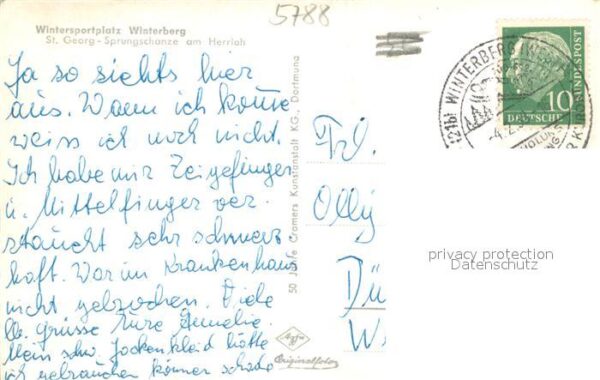 5788
Wintersportplatz Winterberg
St. Georg - Sprungschanze am Herrloh
Ja so siehts hier
aus. Wann ich komme
weiss ich noch nicht.
Ich habe mir Zeigefinger
u. Mittelfinger ver-
staucht sehr schmerz
haft. War im Krankenhaus
nicht gebrochen. Viele
lb. Grüsse Eure
Mein schw. Jackenkleid hätte
ich gebrauchen können schade
50 Jahre Cramers Kunstanstalt KG., Dortmund
Agfa
Originalfoto
Frl.
Olly
Dü
W
(21b) WINTERBERG
10
DEUTSCHE
BUNDESPOST
privacy protection
Datenschutz